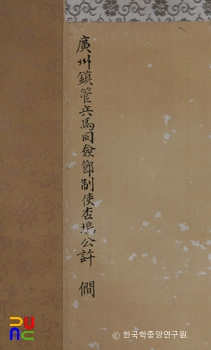 廣州鎭管兵馬同僉節制使杏塢公許 僩
ⓒ 한국학중앙연구원